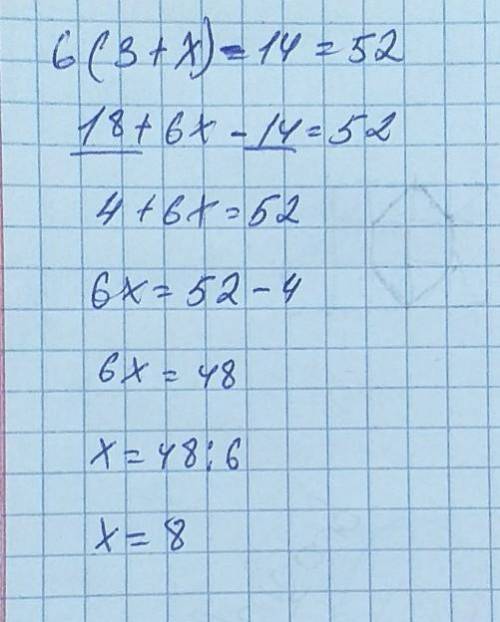 6(3+x)-14=52
18+6x-14=52
4+6x=52
6x=52-4
6x=48
x=48:6
x=8